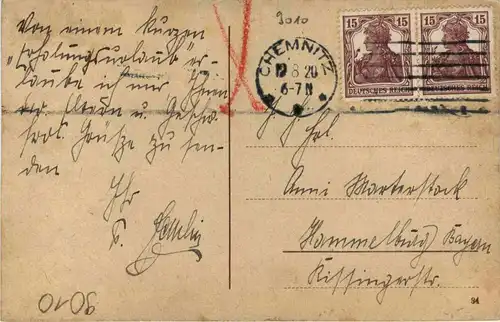 9010
Von einem kurzen
"Erholungsurlaub" er-
laube ich mir Ihnen
Eltern u. Geschw.
Grüsse zu sen-
den
Ihr
CHEMNITZ
8 20
6-7N
15 15 15 15
DEUTSCHES REICH DEUTSCHES REICH
Frl.
Anni Marterstock
Hammelburg Bayern
Kissingerstr.
34
9010